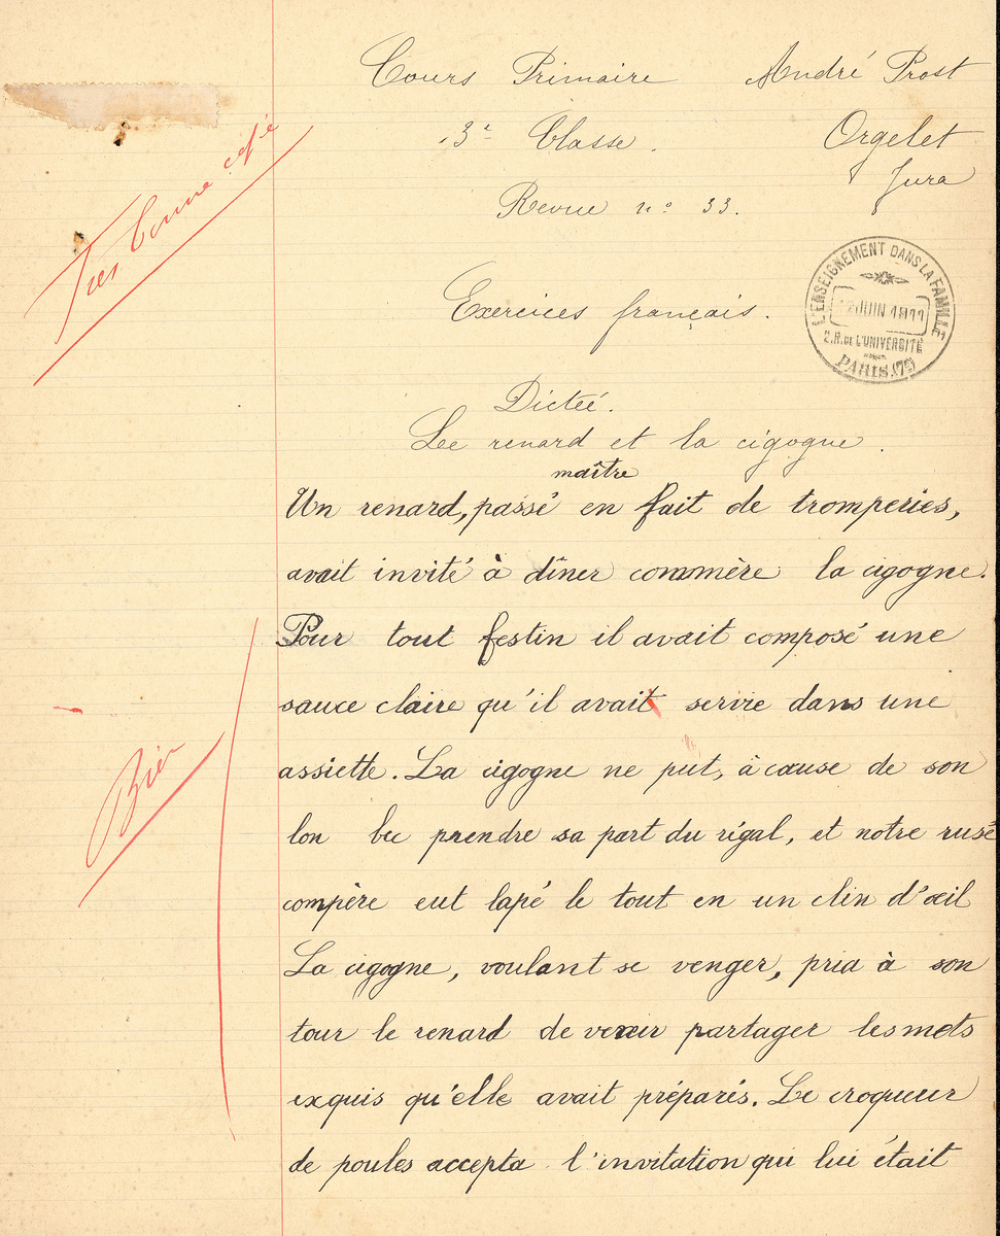 Cours Primaire André Prost
3e Classe. Orgelet
Jura
Revue no 33.
Très bonne copie
L'ENSEIGNEMENT DANS LA FAMILLE
JUIN 1911
2. R. DE L'UNIVERSITÉ
PARIS (7e)
Exercices français.
Dicteé.
Le renard et la cigogne.
maître
Un renard, passé en fait de tromperies,
avait invité à dîner commère la cigogne.
Pour tout festin il avait composé une
sauce claire qu'il avait servie dans une
assiette. La cigogne ne put, à cause de son
Bien
lon bec prendre sa part du régal, et notre rusé
compère eut lapé le tout en un clin d'œil
La cigogne, voulant se venger, pria à son
tour le renard de venir partager les mets
exquis qu'elle avait préparés. Le croqueur
de poules accepta l'invitation qui lui était